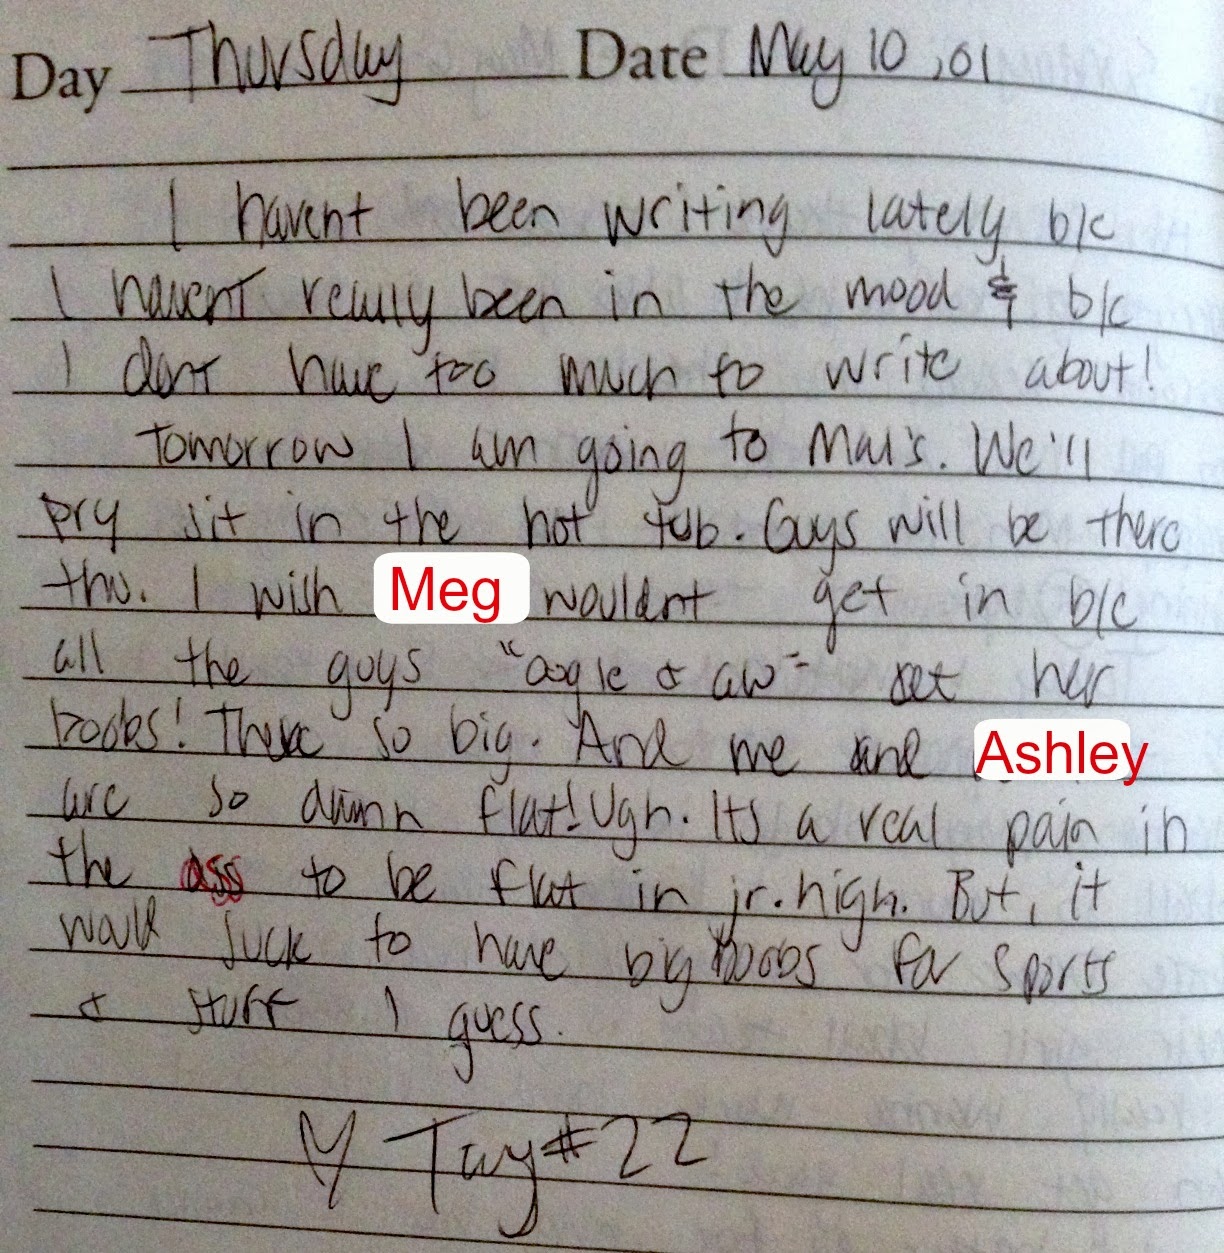 Day Thursday Date May 10, 01
I havent been writing lately b/c
I havent really been in the mood & b/c
I dont have too much to write about!
Tomorrow I am going to Mal's. We'll
pry sit in the hot tub. Guys will be there
tho. I wish Meg wouldnt get in b/c
all the guys "oogle & aw" at her
boobs! There so big. And me and Ashley
are so damn flat! Ugh. Its a real pain in
the ass to be flat in jr. high. But, it
would suck to have big boobs for sports
& stuff I guess.
♡ Tay #22